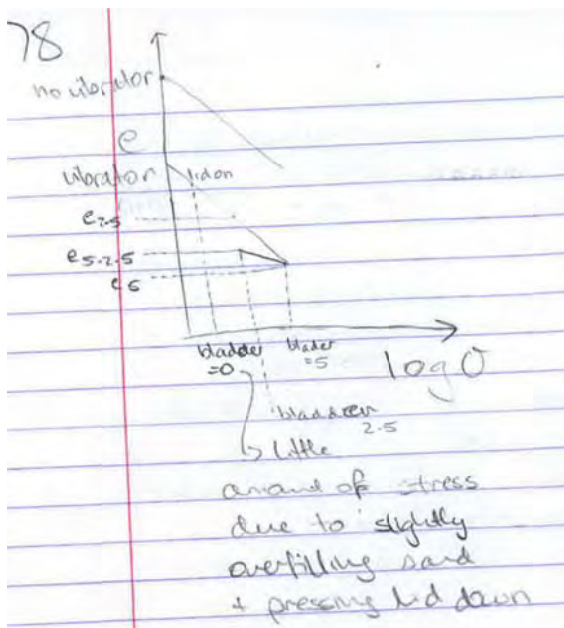 78
no vibrator
e
vibrator
lid on
e2.5
e5-2.5
e5
bladder
=0
blader
=5
log σ
bladder
2.5
little
amount of stress
due to slightly
overfilling sand
+ pressing lid down